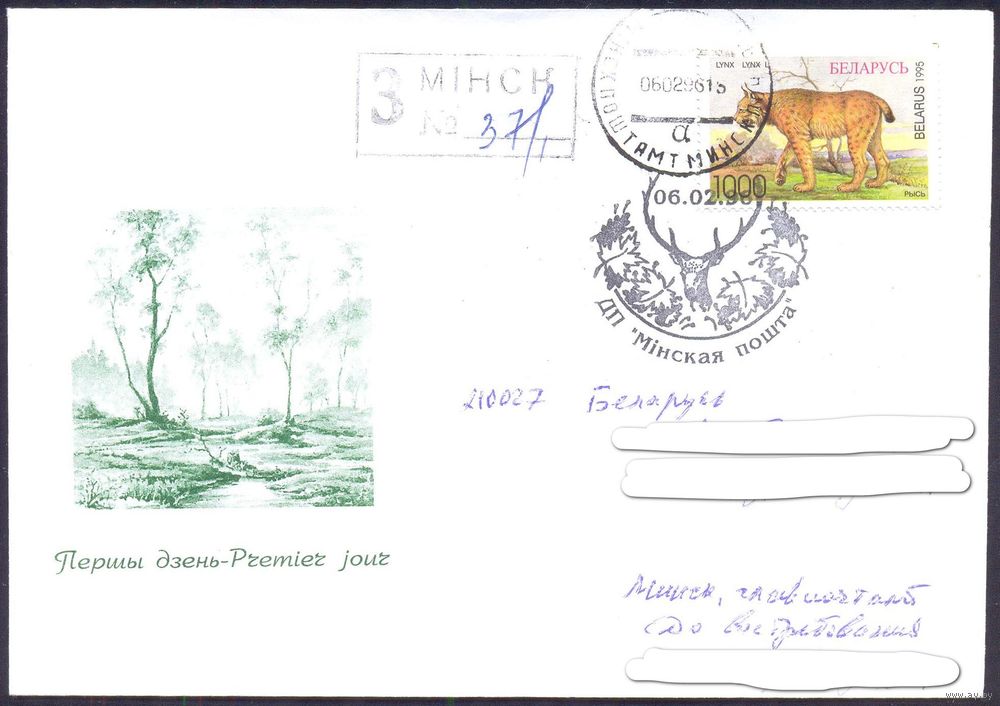 З МІНСК
№ 371
060296 15
а
ПОШТАМТ МИНСК
LYNX LYNX L
БЕЛАРУСЬ
BELARUS 1995
1000
РЫСЬ
06.02.96
ДП "Мінская пошта"
210027 Беларусь
Першы дзень-Premier jour
Минск, главпочтамт
До востребования
www.ay.by